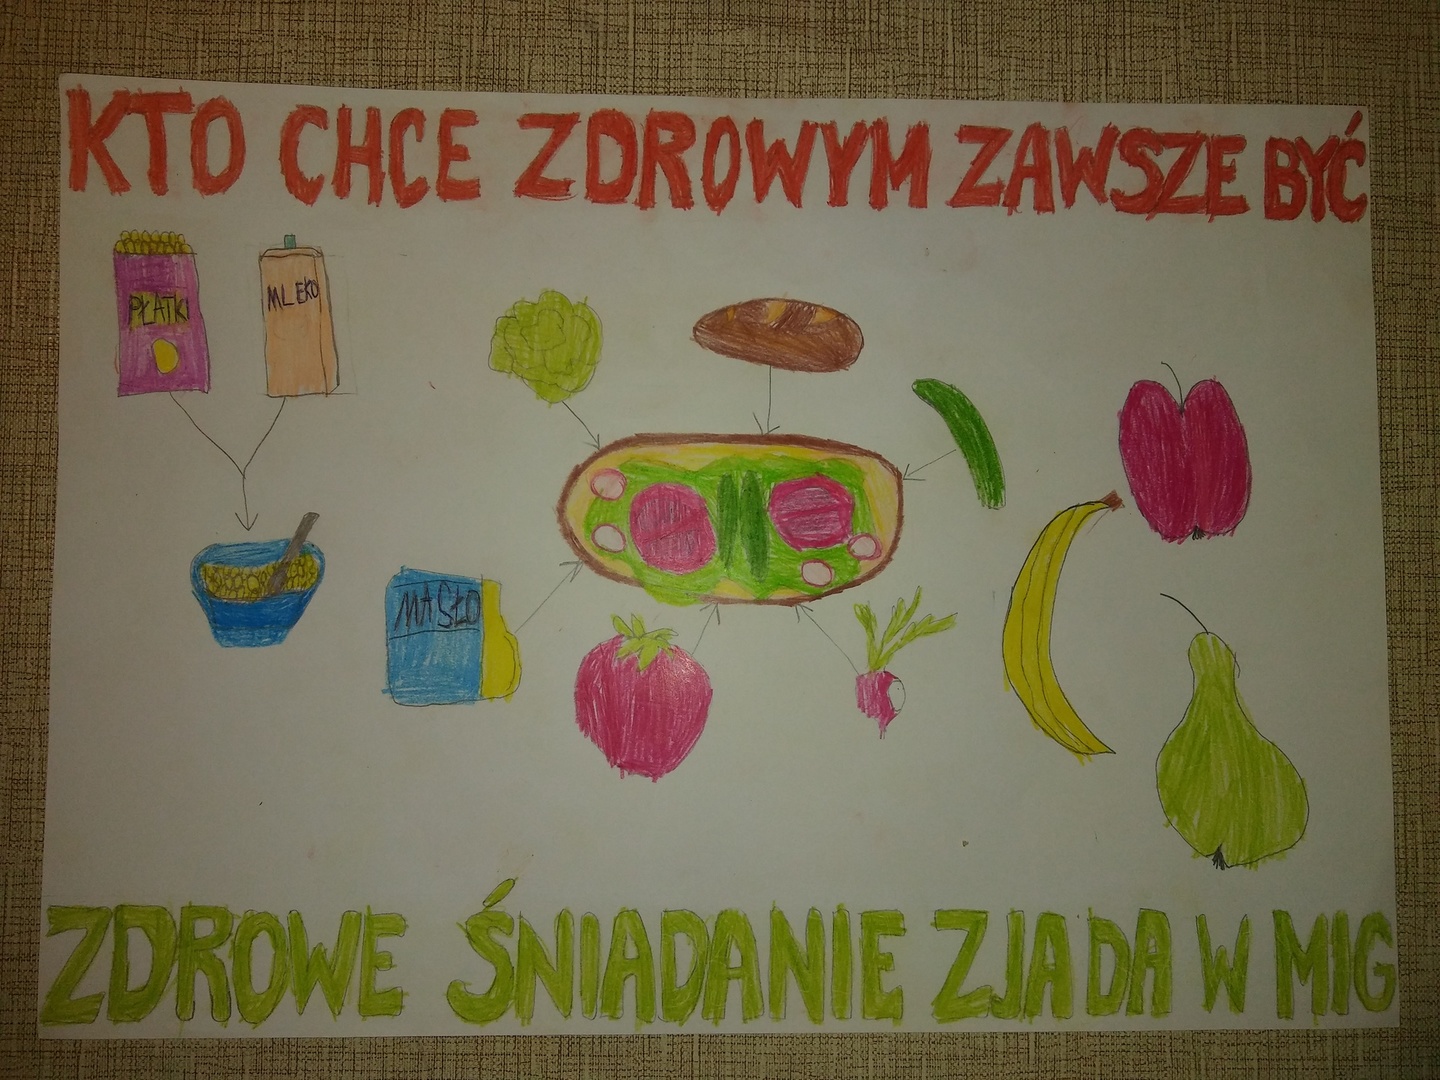 KTO CHCE ZDROWYM ZAWSZE BYĆ
PŁATKI
MLEKO
MASŁO
ZDROWE ŚNIADANIE ZJADA W MIG